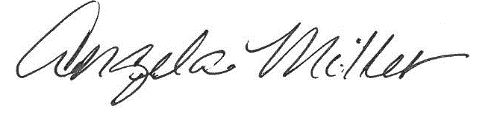 Angela Miller